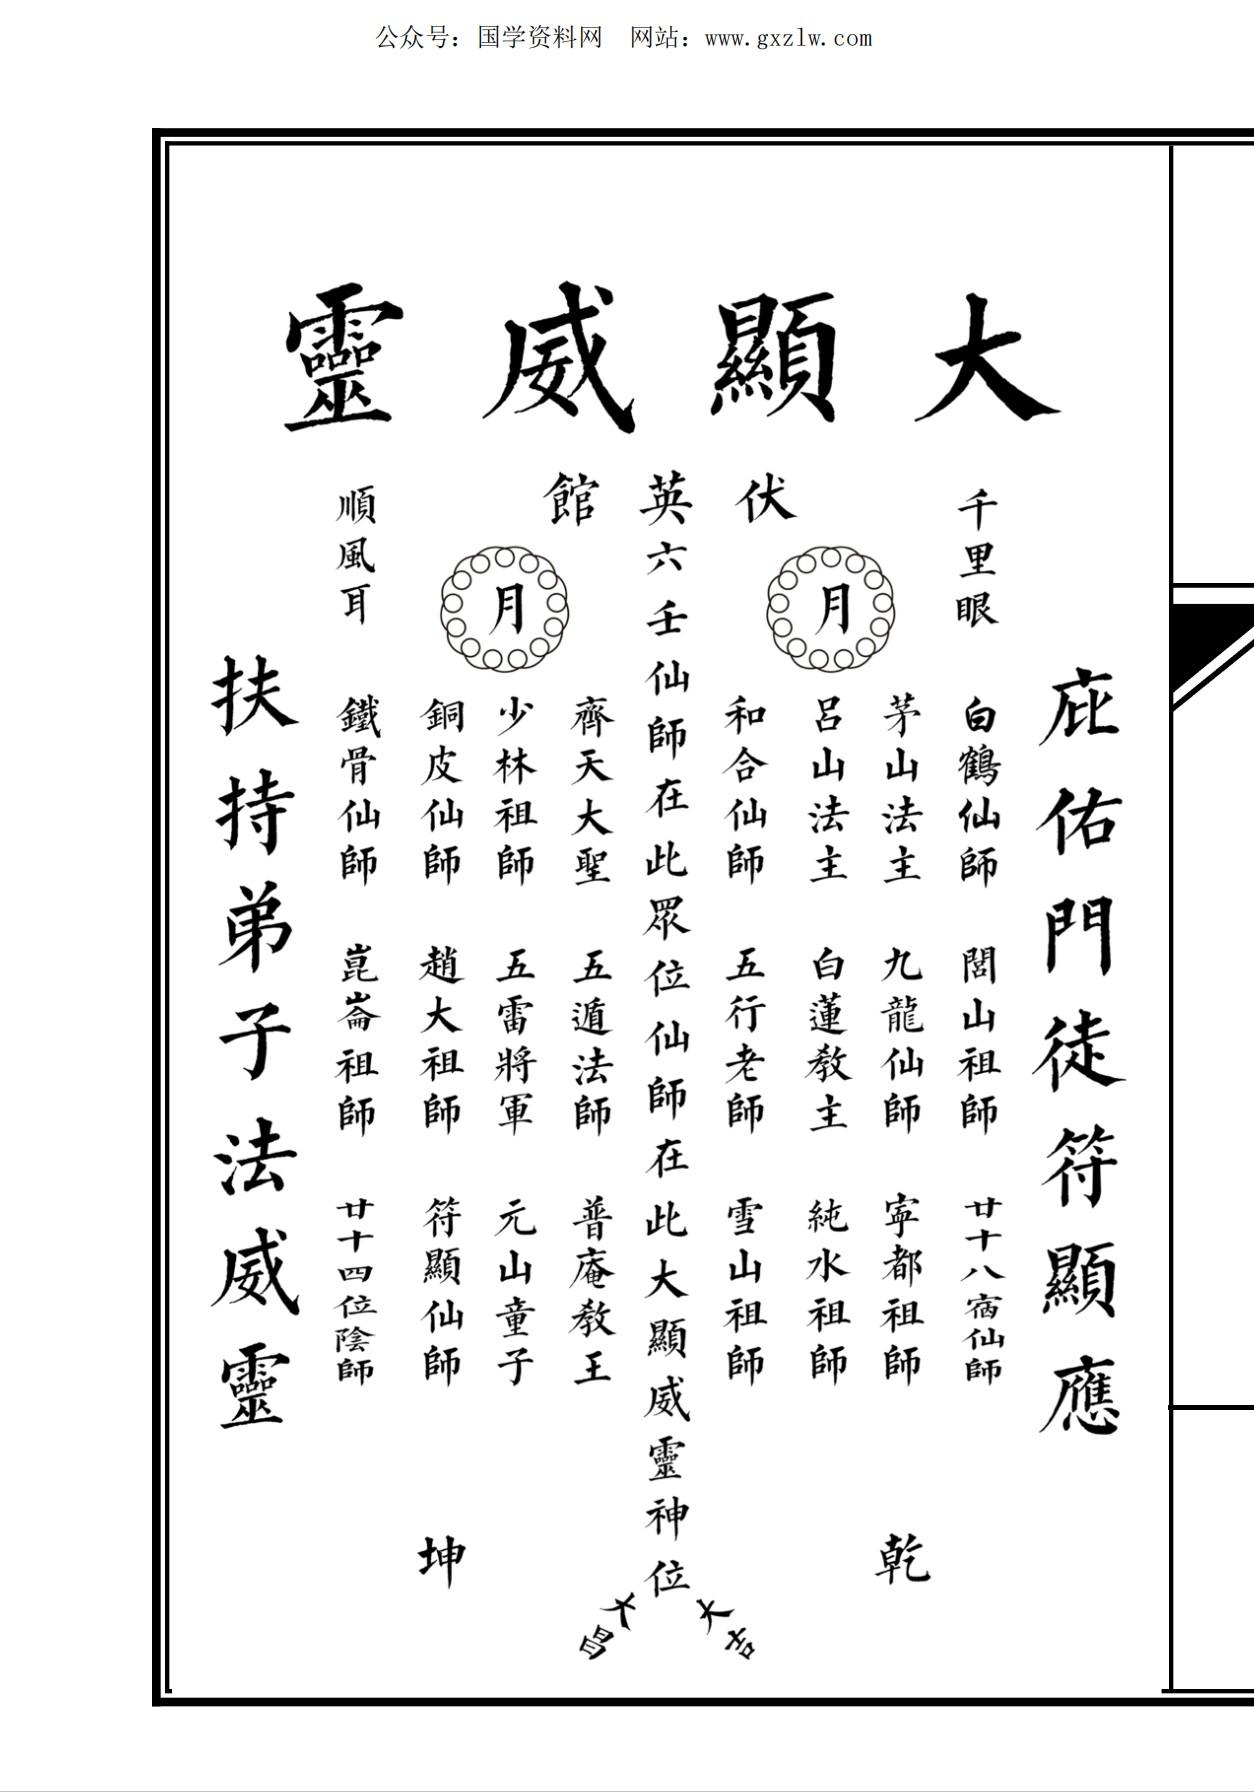 公众号：国学资料网　网站：www.gxzlw.com
大顯威靈
伏英館
庇佑門徒符顯應
千里眼
白鶴仙師
閭山祖師
廿十八宿仙師
茅山法主
九龍仙師
寧都祖師
乾
月
呂山法主
白蓮教主
純水祖師
和合仙師
五行老師
雪山祖師
六壬仙師在此眾位仙師在此大顯威靈神位
大吉
大昌
月
齊天大聖
五遁法師
普庵教王
少林祖師
五雷將軍
元山童子
銅皮仙師
趙大祖師
符顯仙師
坤
順風耳
鐵骨仙師
崑崙祖師
廿十四位陰師
扶持弟子法威靈